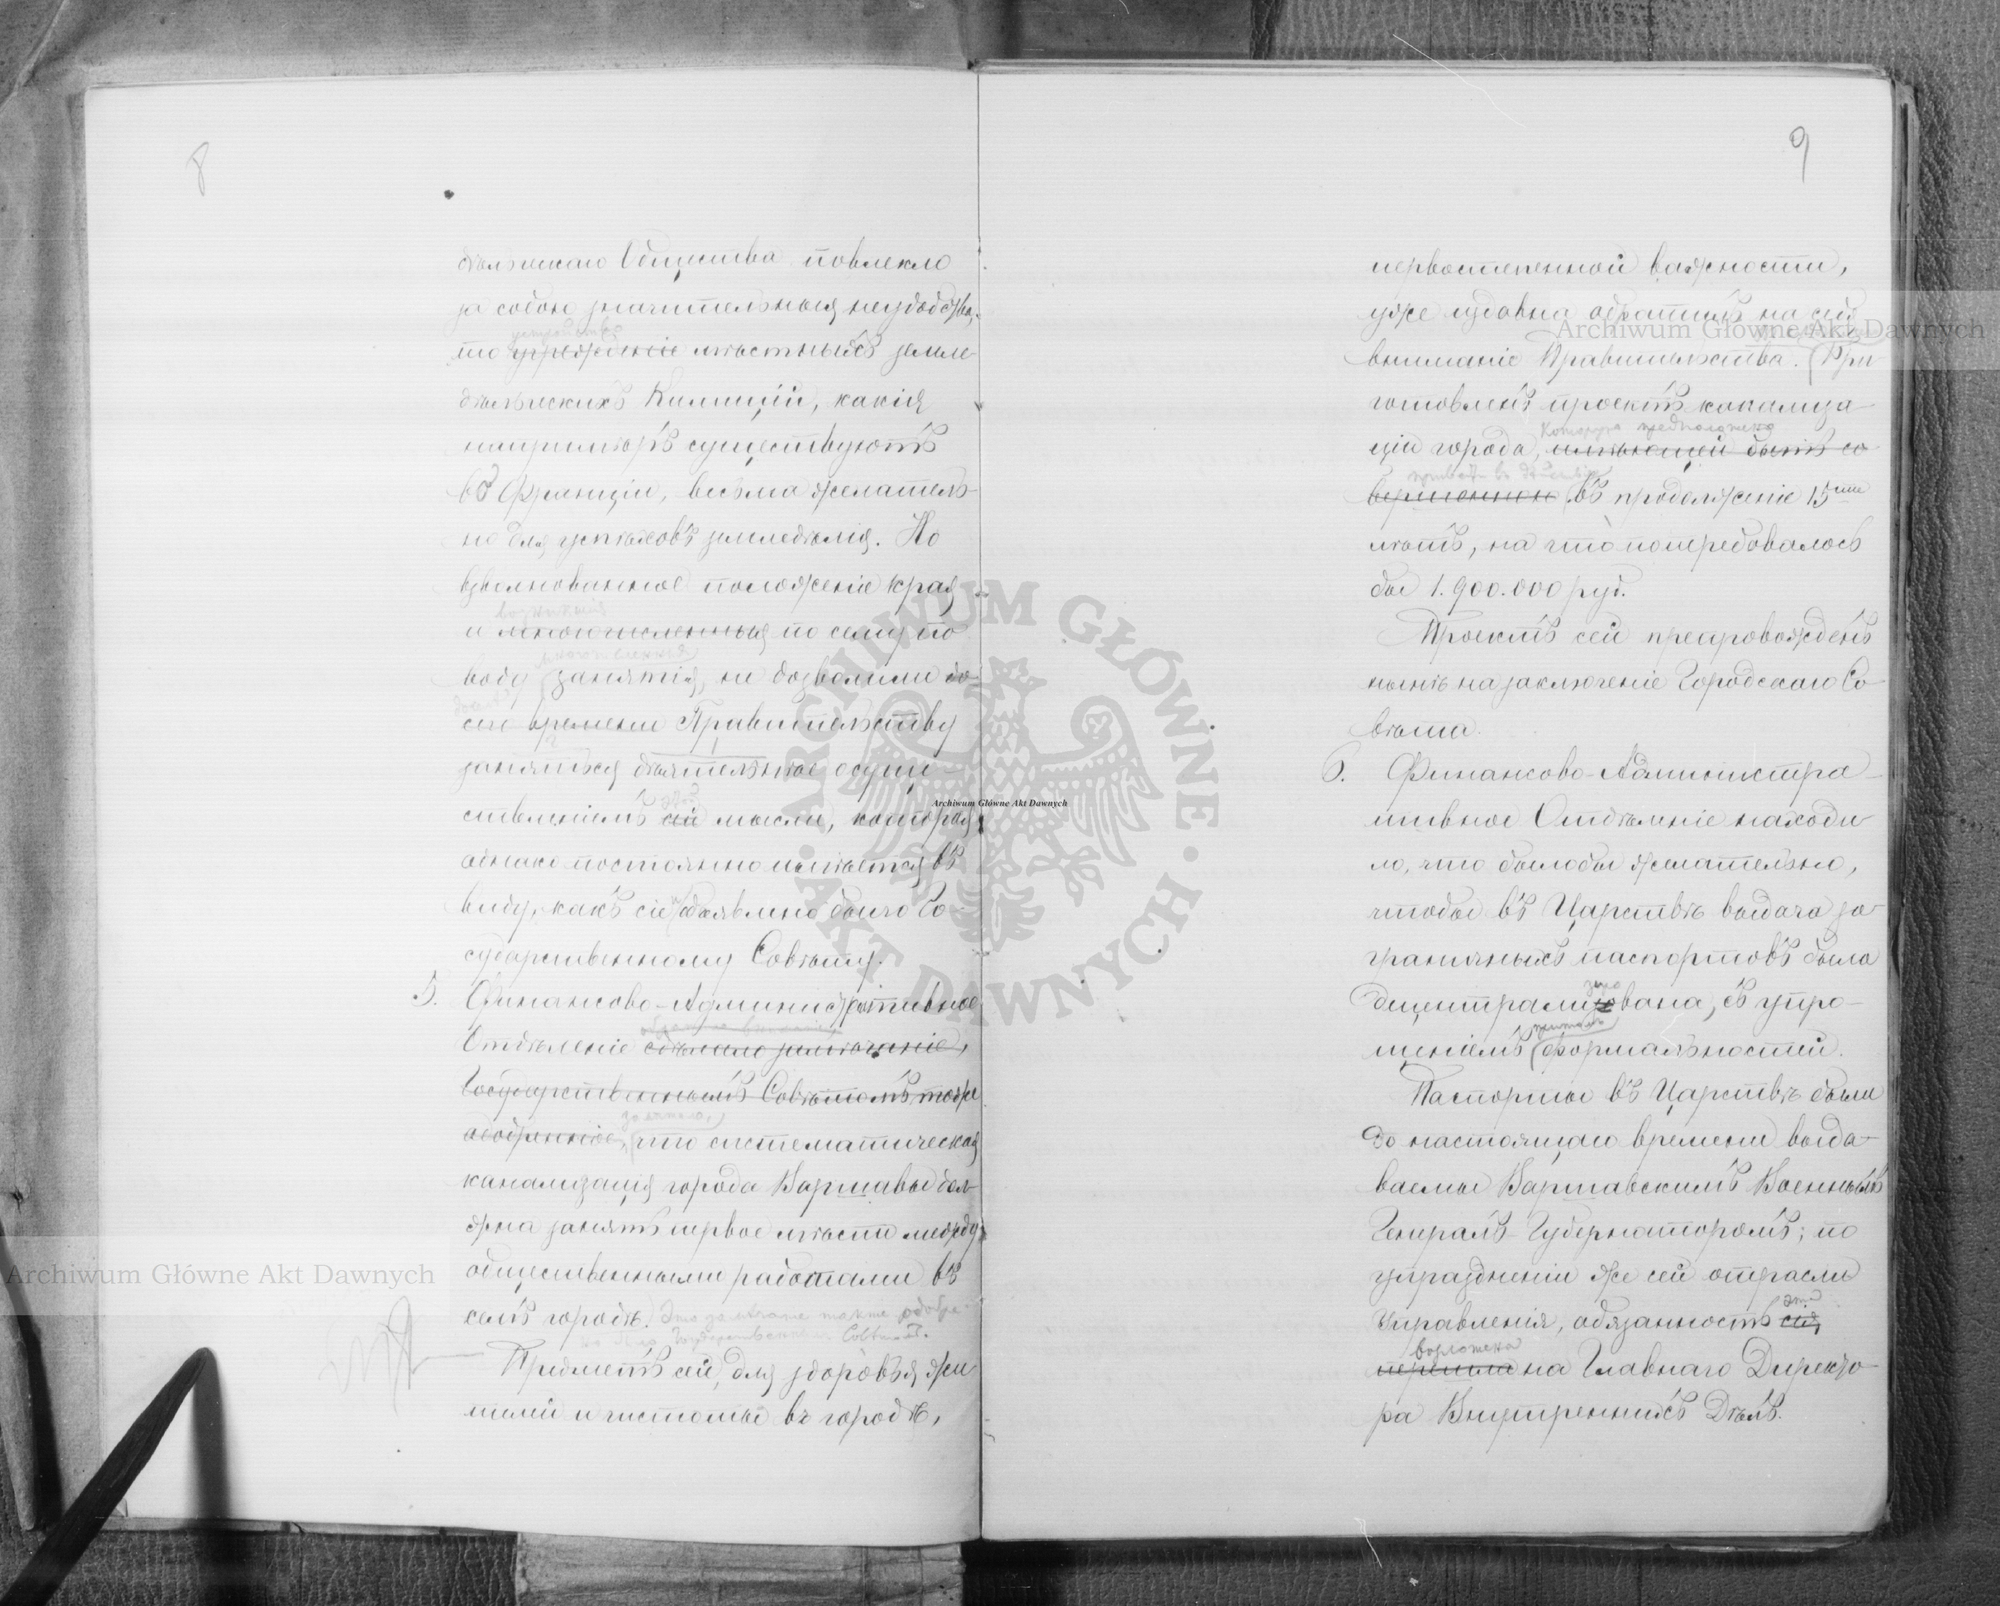 8
дѣльческаго Общества повлекло
за собою значительныя неудобства,
устройство
то учрежденіе мѣстныхъ земле-
дѣльческихъ Комицій, какія
напримѣръ существуютъ
во Франціи, весьма желатель-
но для успѣховъ земледѣлія. Но
взволнованное положеніе края
возникшія
и многочисленныя по сему по-
многочисленныя
воду занятія, не дозволили до
сего времени Правительству
заняться дѣятельнѣе осуще-
этой
ствленіемъ сей мысли, которая
однако постоянно имѣется въ
виду, какъ сіе и объявлено было Го-
сударственному Совѣту.
5. Финансово-Административное
Отдѣленіе сдѣлало замѣчаніе,
Государственнымъ Совѣтомъ тоже
замѣтило,
одобренное, что систематическая
канализація города Варшавы дол-
жна занять первое мѣсто между
общественными работами въ
семъ городѣ. Это замѣчаніе также одобре-
но было Государственнымъ Совѣтомъ.
Предметъ сей, для здоровья жи-
телей и чистоты въ городѣ,
9
первостепенной важности,
уже издавна обратилъ на себя
вниманіе Правительства. При-
готовленъ проектъ канализа-
которую предположено
ціи города, имѣющей быть со-
привести въ дѣйствіе
вершенною въ продолженіе 15ти
лѣтъ, на что потребовалось
бы 1.900.000 руб.
Проектъ сей препровожденъ
нынѣ на заключеніе Городскаго Со-
вѣта.
6. Финансово-Администра-
тивное Отдѣленіе находи-
ло, что было бы желательно,
чтобы въ Царствѣ выдача за-
граничныхъ паспортовъ была
зиро
децентрализована, съ упро-
щеніемъ формальностей.
Паспорты въ Царствѣ были
до настоящаго времени выда-
ваемы Варшавскимъ Военнымъ
Генералъ-Губернаторомъ; по
упраздненіи же сей отрасли
эта
Управленія, обязанность сія
возложена
перешла на Главнаго Директо-
ра Внутреннихъ Дѣлъ.
Archiwum Główne Akt Dawnych
Archiwum Główne Akt Dawnych
Archiwum Główne Akt Dawnych
ARCHIWUM GŁÓWNE AKT DAWNYCH